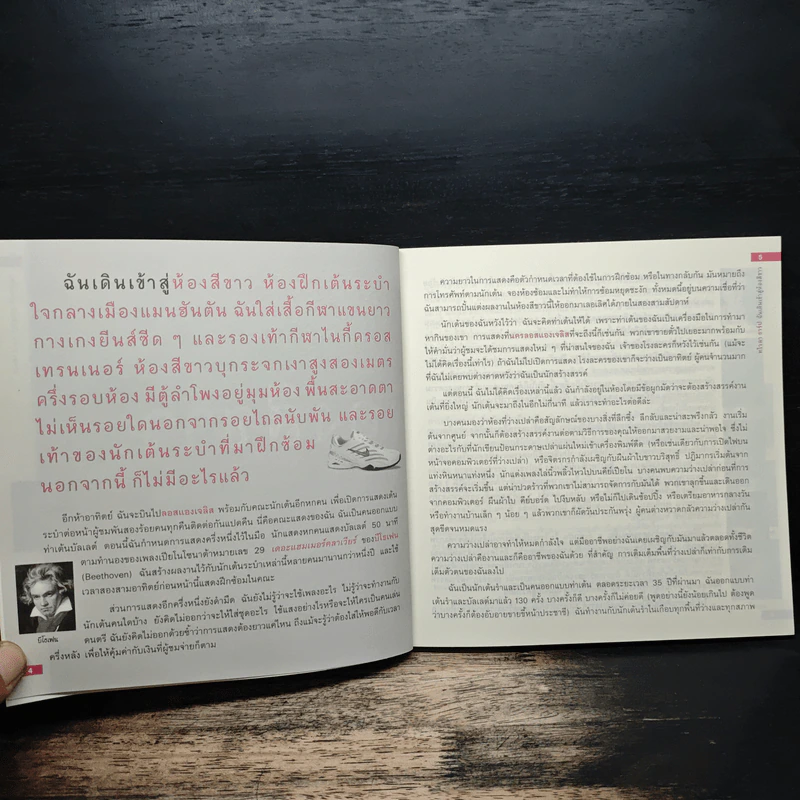 ฉันเดินเข้าสู่ห้องสีขาว ห้องฝึกเต้นระบำ
ใจกลางเมืองแมนฮันตัน ฉันใส่เสื้อกีฬาแขนยาว
กางเกงยีนส์ซีด ๆ และรองเท้ากีฬาไนกี้ครอส
เทรนเนอร์ ห้องสีขาวบุกระจกเงาสูงสองเมตร
ครึ่งรอบห้อง มีตู้ลำโพงอยู่มุมห้อง พื้นสะอาดตา
ไม่เห็นรอยใดนอกจากรอยไถลนับพัน และรอย
เท้าของนักเต้นระบำที่มาฝึกซ้อม
นอกจากนี้ ก็ไม่มีอะไรแล้ว
อีกห้าอาทิตย์ ฉันจะบินไปลอสแองเจลิส พร้อมกับคณะนักเต้นอีกหกคน เพื่อเปิดการแสดงเต้น
ระบำต่อหน้าผู้ชมพันสองร้อยคนทุกคืนติดต่อกันแปดคืน นี่คือคณะแสดงของฉัน ฉันเป็นคนออกแบบ
ท่าเต้นบัลเลต์ ตอนนี้ฉันกำหนดการแสดงครึ่งหนึ่งไว้ในมือ นักแสดงหกคนแสดงบัลเลต์ 50 นาที
ตามทำนองของเพลงเปียโนโซนาต้าหมายเลข 29 เดอะแฮมเมอร์คลาเวียร์ ของบีโธเฟน
(Beethoven) ฉันสร้างผลงานไว้กับนักเต้นระบำเหล่านี้หลายคนมานานกว่าหนึ่งปี และใช้
เวลาสองสามอาทิตย์ก่อนหน้านี้แสดงฝึกซ้อมในคณะ
ส่วนการแสดงอีกครึ่งหนึ่งยังดำมืด ฉันยังไม่รู้ว่าจะใช้เพลงอะไร ไม่รู้ว่าจะทำงานกับ
นักเต้นคนใดบ้าง ยังคิดไม่ออกว่าจะให้ใส่ชุดอะไร ใช้แสงอย่างไรหรือจะให้ใครเป็นคนเล่น
ดนตรี ฉันยังคิดไม่ออกด้วยซ้ำว่าการแสดงต้องยาวแค่ไหน ถึงแม้จะรู้ว่าต้องใส่ให้พอดีกับเวลา
ครึ่งหลัง เพื่อให้คุ้มค่ากับเงินที่ผู้ชมจ่ายก็ตาม
บีโธเฟน
4
5
ความยาวในการแสดงคือตัวกำหนดเวลาที่ต้องใช้ในการฝึกซ้อม หรือในทางกลับกัน มันหมายถึง
การโทรศัพท์ตามนักเต้น จองห้องซ้อมและไม่ทำให้การซ้อมหยุดชะงัก ทั้งหมดนี้อยู่บนความเชื่อที่ว่า
ฉันสามารถปั้นแต่งผลงานในห้องสีขาวนี้ให้ออกมาเลอเลิศได้ภายในสองสามสัปดาห์
นักเต้นของฉันหวังไว้ว่า ฉันจะคิดท่าเต้นให้ได้ เพราะท่าเต้นของฉันเป็นเครื่องมือในการทำมา
หากินของเขา การแสดงที่นครลอสแองเจลิสที่จะถึงนี้ก็เช่นกัน พวกเขาขายตั๋วไปเยอะมากพร้อมกับ
ให้คำมั่นว่าผู้ชมจะได้ชมการแสดงใหม่ ๆ ที่น่าสนใจของฉัน เจ้าของโรงละครก็หวังไว้เช่นกัน (แม้จะ
ไม่ได้คิดเรื่องนี้เท่าไร) ถ้าฉันไม่ไปเปิดการแสดง โรงละครของเขาก็จะว่างเป็นอาทิตย์ ผู้คนจำนวนมาก
ที่ฉันไม่เคยพบต่างคาดหวังว่าฉันเป็นนักสร้างสรรค์
แต่ตอนนี้ ฉันไม่ได้คิดเรื่องเหล่านี้แล้ว ฉันกำลังอยู่ในห้องโดยมีข้อผูกมัดว่าจะต้องสร้างสรรค์งาน
เต้นที่ยิ่งใหญ่ นักเต้นจะมาถึงในอีกไม่กี่นาที แล้วเราจะทำอะไรต่อดีล่ะ
บางคนมองว่าห้องที่ว่างเปล่าคือสัญลักษณ์ของบางสิ่งที่ลึกซึ้ง ลึกลับและน่าสะพรึงกลัว งานเริ่ม
ต้นจากศูนย์ จากนั้นก็ต้องสร้างสรรค์งานต่อตามวิธีการของคุณให้ออกมาสวยงามและน่าพอใจ ซึ่งไม่
ต่างอะไรกับที่นักเขียนป้อนกระดาษเปล่าแผ่นใหม่เข้าเครื่องพิมพ์ดีด (หรือเช่นเดียวกับการเปิดไฟบน
หน้าจอคอมพิวเตอร์ที่ว่างเปล่า) หรือจิตรกรกำลังเผชิญกับผืนผ้าใบขาวบริสุทธิ์ ปฏิมากรเริ่มต้นจาก
แท่งหินหนาแท่งหนึ่ง นักแต่งเพลงไล่นิ้วพลิ้วไหวไปบนคีย์เปียโน บางคนพบความว่างเปล่าก่อนที่การ
สร้างสรรค์จะเริ่มขึ้น แต่น่าปวดร้าวที่พวกเขาไม่สามารถจัดการกับมันได้ พวกเขาลุกขึ้นและเดินออก
จากคอมพิวเตอร์ ผืนผ้าใบ คีย์บอร์ด ไปงีบหลับ หรือไม่ก็ไปเดินช้อปปิ้ง หรือเตรียมอาหารกลางวัน
หรือทำงานบ้านเล็ก ๆ น้อย ๆ แล้วพวกเขาก็ผัดวันประกันพรุ่ง ผู้คนต่างหวาดกลัวความว่างเปล่ากัน
สุดขีดจนหมดแรง
ความว่างเปล่าอาจทำให้หมดกำลังใจ แต่มืออาชีพอย่างฉันเคยเผชิญกับมันมาแล้วตลอดทั้งชีวิต
ความว่างเปล่าคืองานและก็คืออาชีพของฉันด้วย ที่สำคัญ การเติมเต็มพื้นที่ว่างเปล่าก็เท่ากับการเติม
เต็มตัวตนของฉันลงไป
ฉันเป็นนักเต้นรำและเป็นคนออกแบบท่าเต้น ตลอดระยะเวลา 35 ปีที่ผ่านมา ฉันออกแบบท่า
เต้นรำและบัลเลต์มาแล้ว 130 ครั้ง บางครั้งก็ดี บางครั้งก็ไม่ค่อยดี (พูดอย่างนี้ยังน้อยเกินไป ต้องพูด
ว่าบางครั้งก็ต้องอับอายขายขี้หน้าประชาชี) ฉันทำงานกับนักเต้นรำในเกือบทุกพื้นที่ว่างและทุกสภาพ